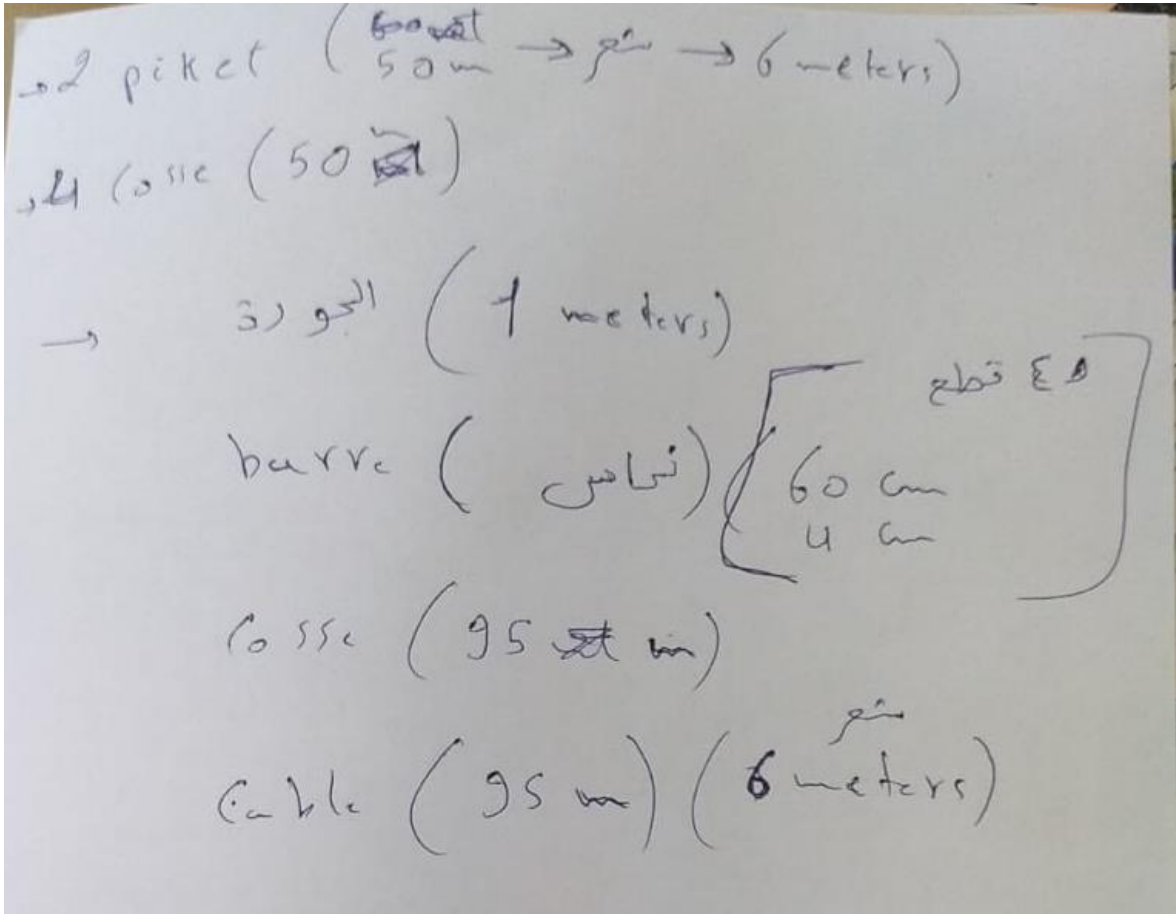 → 2 piket (50m → شعر → 6 meters)
→ 4 Cosse (50)
→ الجورة (1 meters)
٤ قطع
barre (نحاس) [60 cm
4 cm]
Cosse (95 m)
شعر
Cable (95 m) (6 meters)